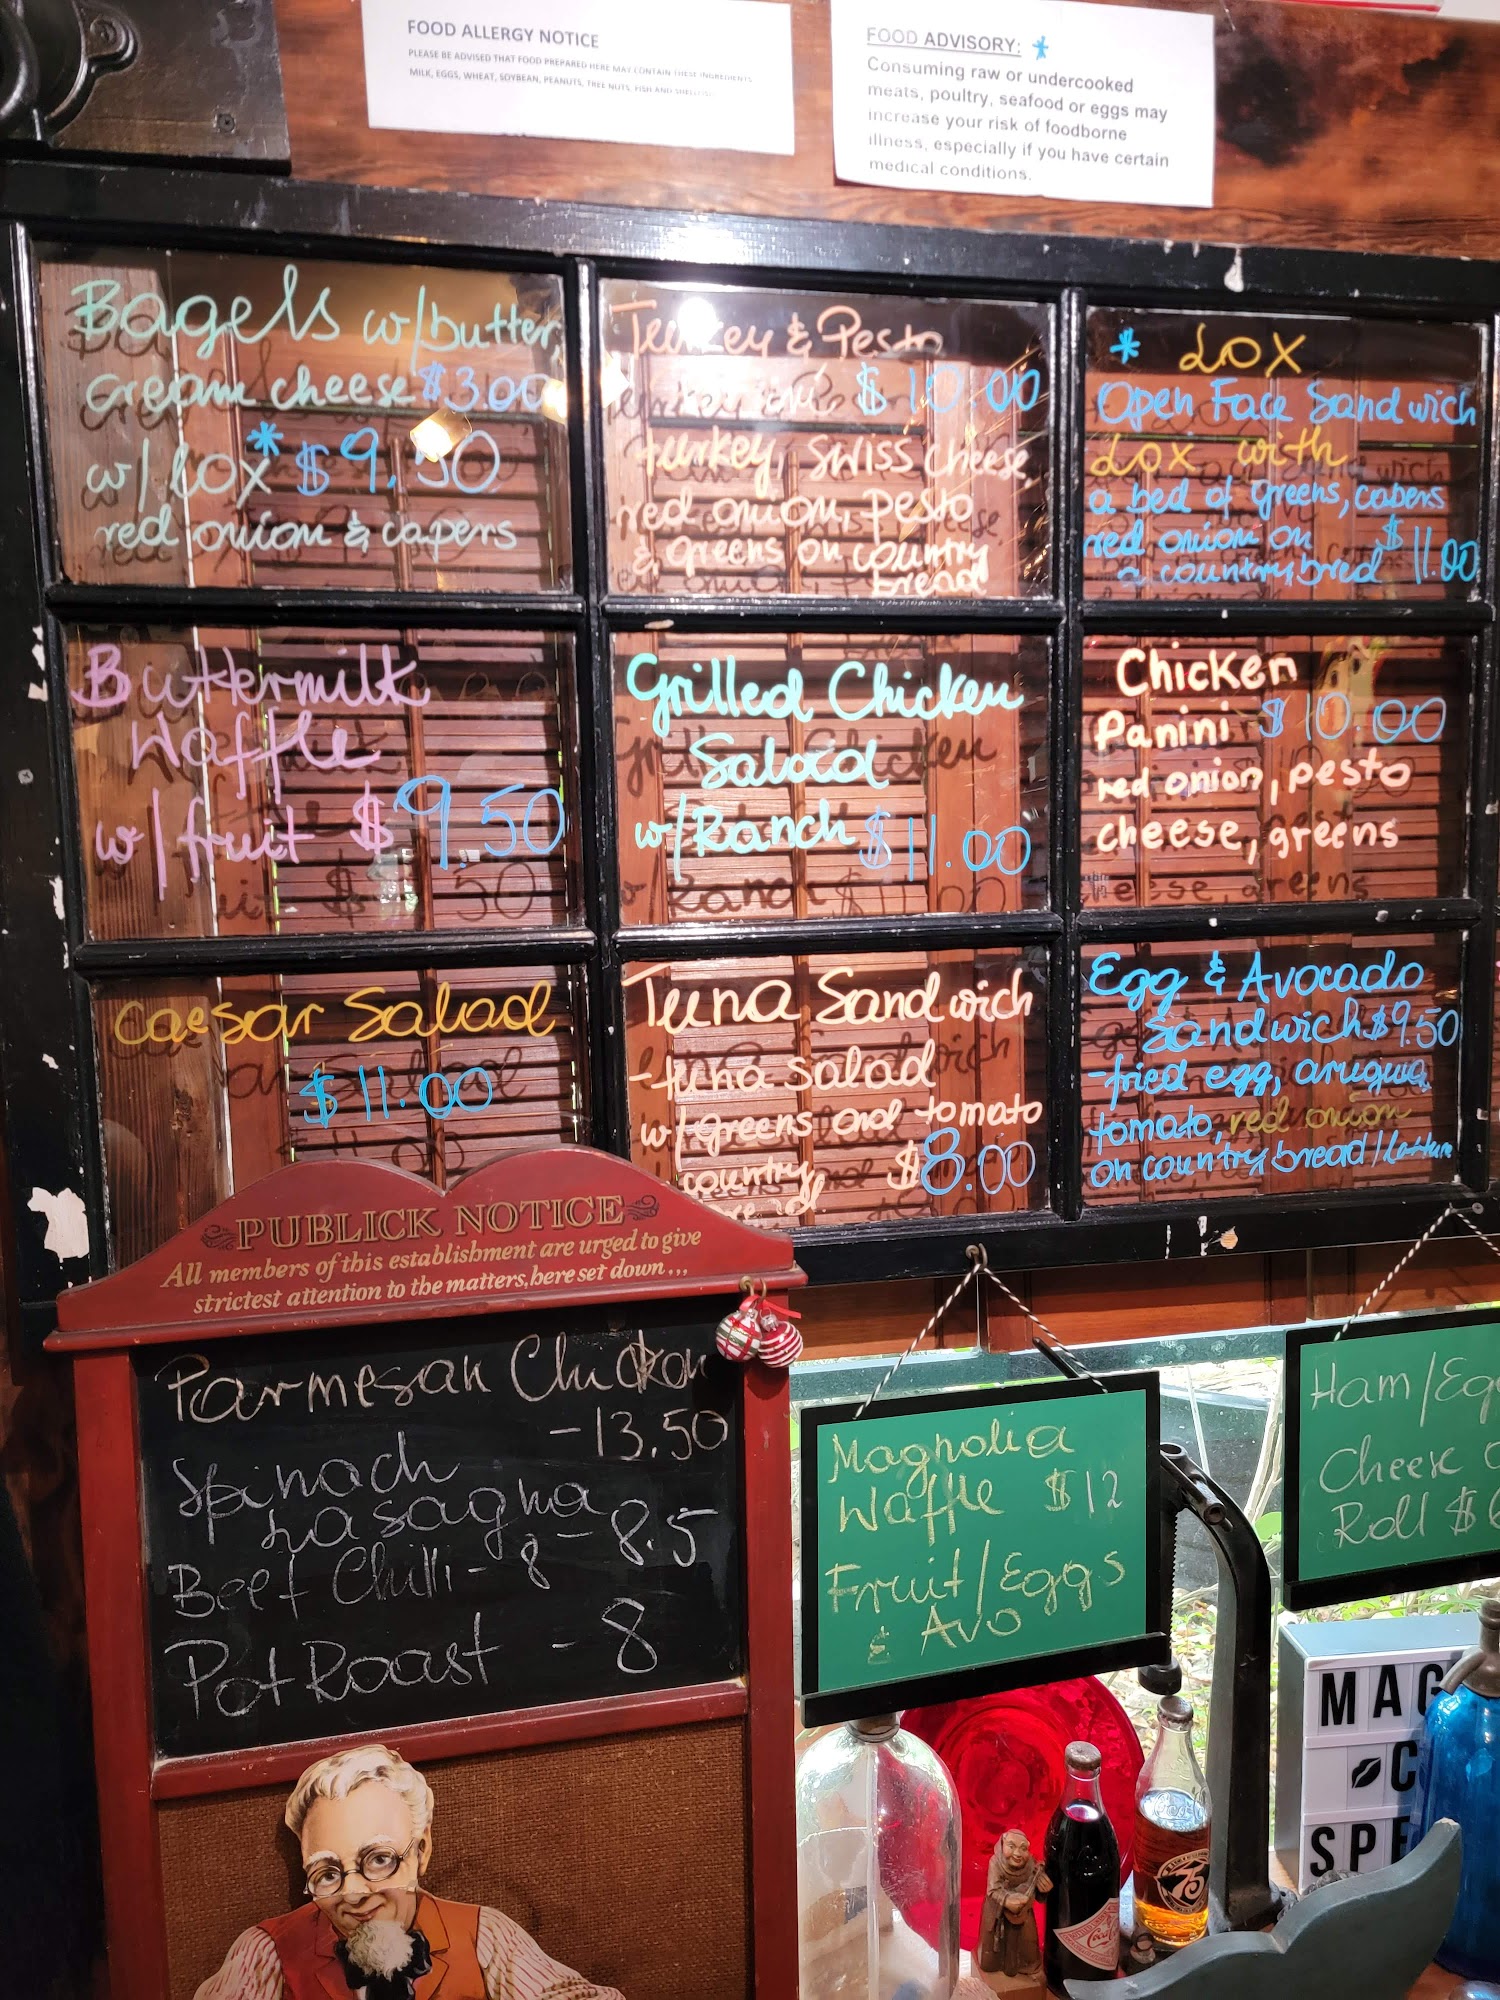 FOOD ALLERGY NOTICE
PLEASE BE ADVISED THAT FOOD PREPARED HERE MAY CONTAIN THESE INGREDIENTS
MILK, EGGS, WHEAT, SOYBEAN, PEANUTS, TREE NUTS, FISH AND SHELLFISH
FOOD ADVISORY:
Consuming raw or undercooked
meats, poultry, seafood or eggs may
increase your risk of foodborne
illness, especially if you have certain
medical conditions.
Bagels w/butter,
cream cheese $3.00
w/ lox* $9.50
red onion & capers
Turkey & Pesto
$10.00
turkey, swiss cheese,
red onion, pesto
& greens on country
bread
* LOX
Open Face Sandwich
Lox with
a bed of greens, capers
red onion on $11.00
a country bred
Buttermilk
Waffle
w/fruit $9.50
Grilled Chicken
Salad
w/Ranch $11.00
Chicken
Panini $10.00
red onion, pesto
cheese, greens
Caesar Salad
$11.00
Tuna Sandwich
-tuna salad
w/greens and tomato
country $8.00
Egg & Avocado
Sandwich $9.50
-fried egg, arugula,
tomato, red onion
on country bread/
PUBLICK NOTICE
All members of this establishment are urged to give
strictest attention to the matters, here set down...
Parmesan Chicken
-13.50
Spinach
Lasagna - 8.5
Beef Chilli - 8
Pot Roast - 8
Magnolia
Waffle $12
Fruit/Eggs
& Avo
Ham/Eg
Cheese
Roll $6
MAG
C
SPE
Coca-Cola
75